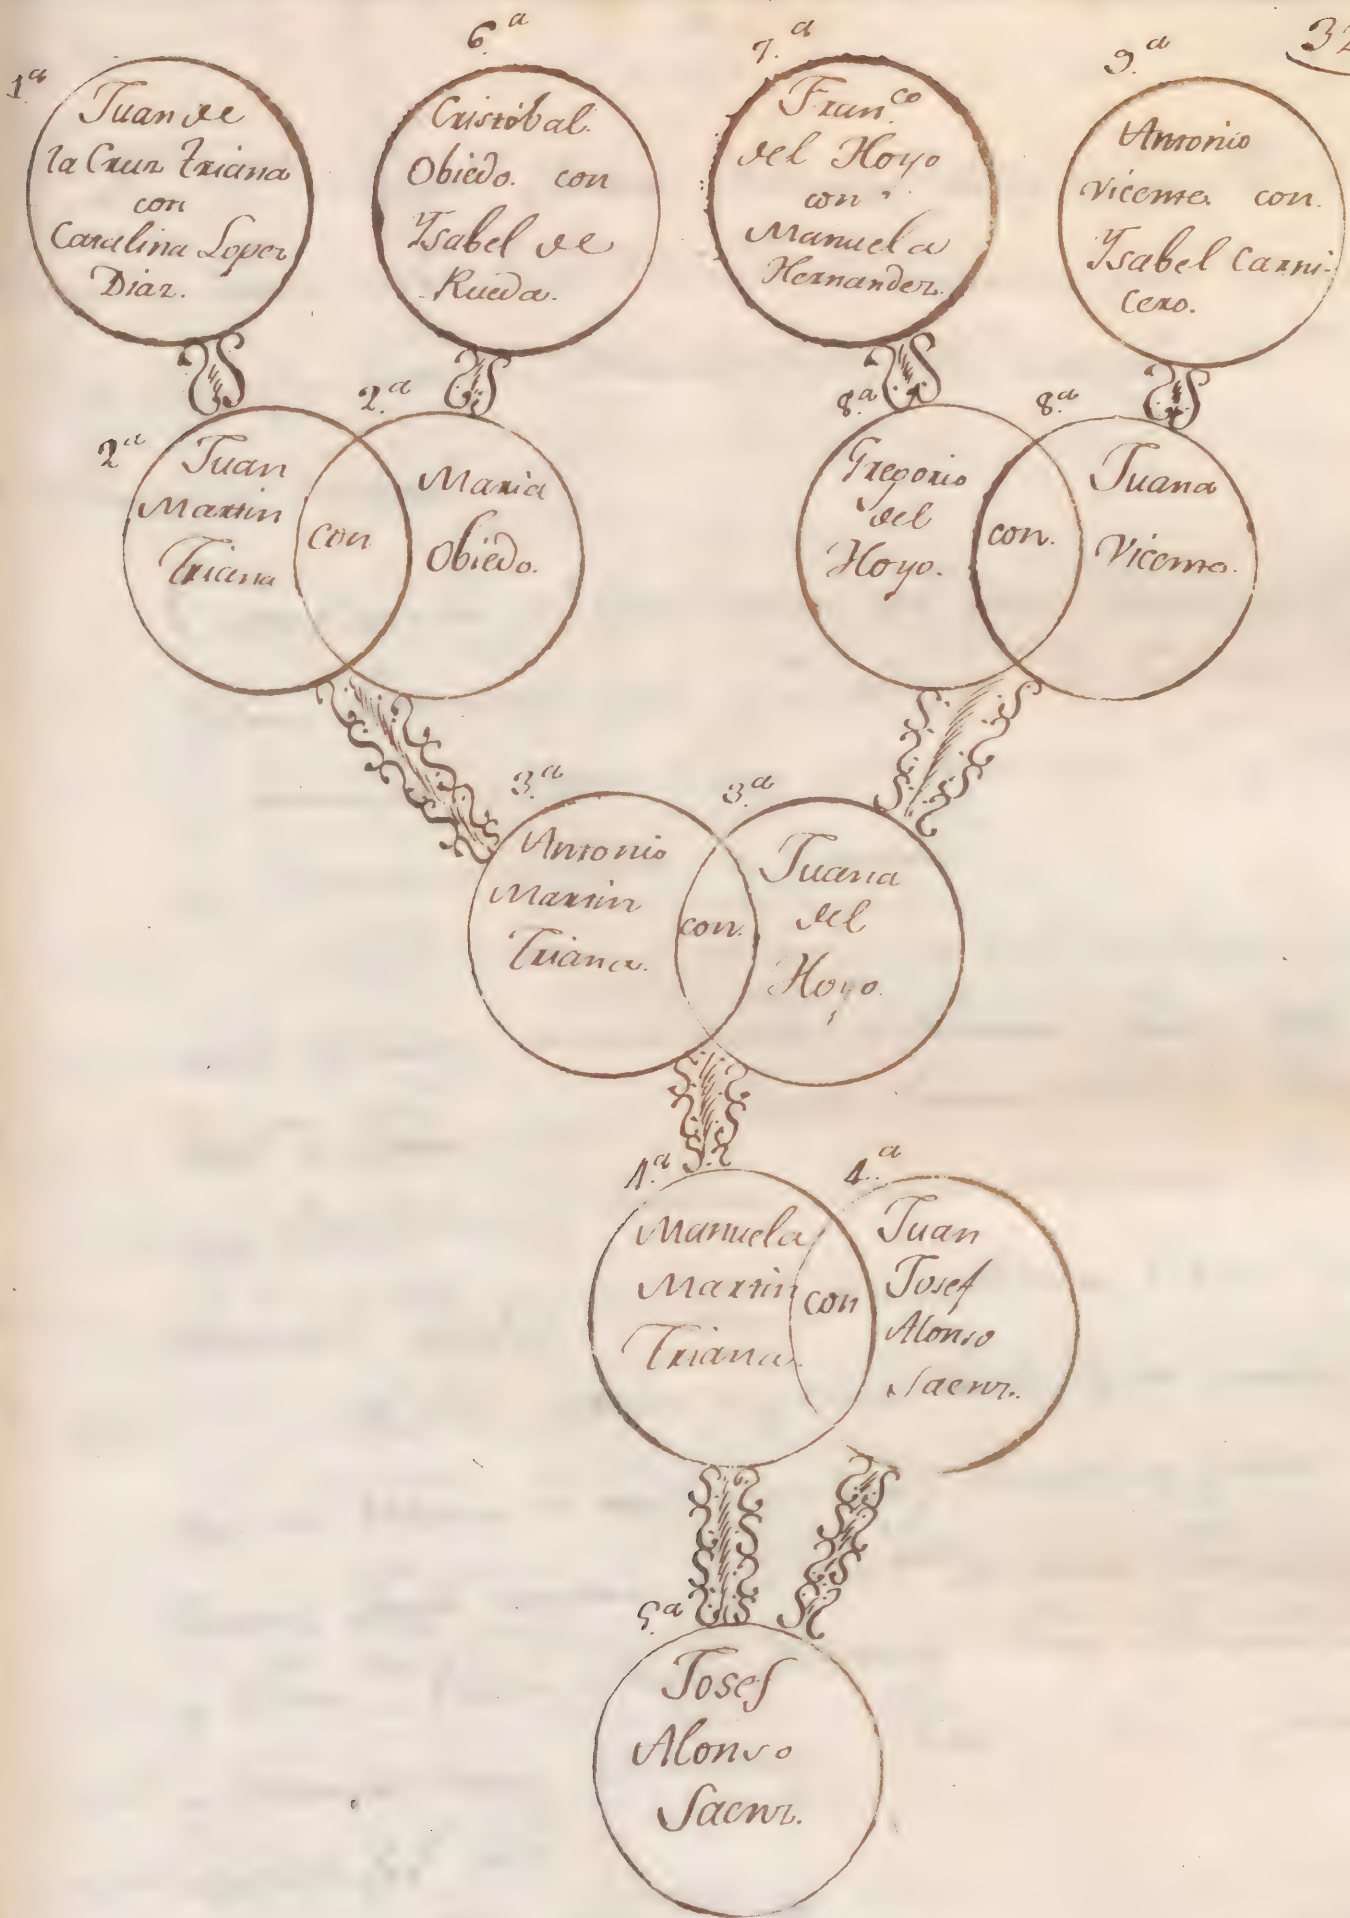 1.ª
Juan de
la Cruz Triana
con
Catalina Lopez
Diaz.
6.ª
Cristóbal
Obiedo. con
Ysabel de
Rueda.
7.ª
Fran.co
del Hoyo
con
Manuela
Hernandez.
9.ª
Antonio
Vicente con
Ysabel Carni-
cero.
32
2.ª
Juan
Martin
Triana
con
2.ª
Maria
Obiedo.
8.ª
Gregorio
del
Hoyo.
con.
8.ª
Juana
Vicente.
3.ª
Antonio
Martin
Triana.
con.
3.ª
Juana
del
Hoyo.
4.ª
Manuela
Martin
Triana.
con
4.ª
Juan
Josef
Alonso
Saenz.
5.ª
Josef
Alonso
Saenz.